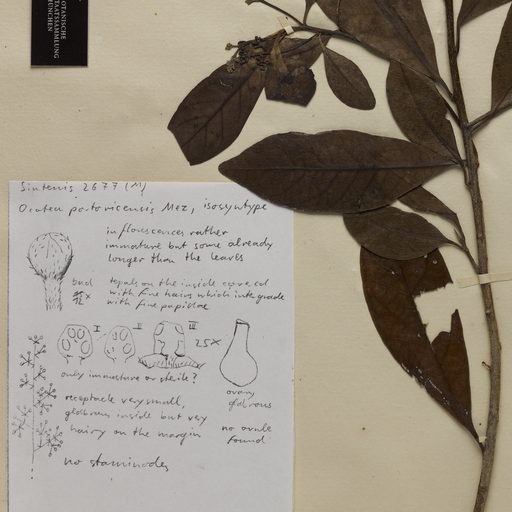 BOTANISCHE
STAATSSAMMLUNG
MÜNCHEN
Sintenis 2677 (M)
Ocotea portoricensis Mez, isosyntype
inflorescences rather
immature but some already
longer than the leaves
bud
tepals on the inside covered
with fine hairs which intergrade
with fine papillae
I II III 25x
only immature or sterile?
ovary
glabrous
receptacle very small,
glabrous inside but very
hairy on the margin
no ovule
found
no staminodes